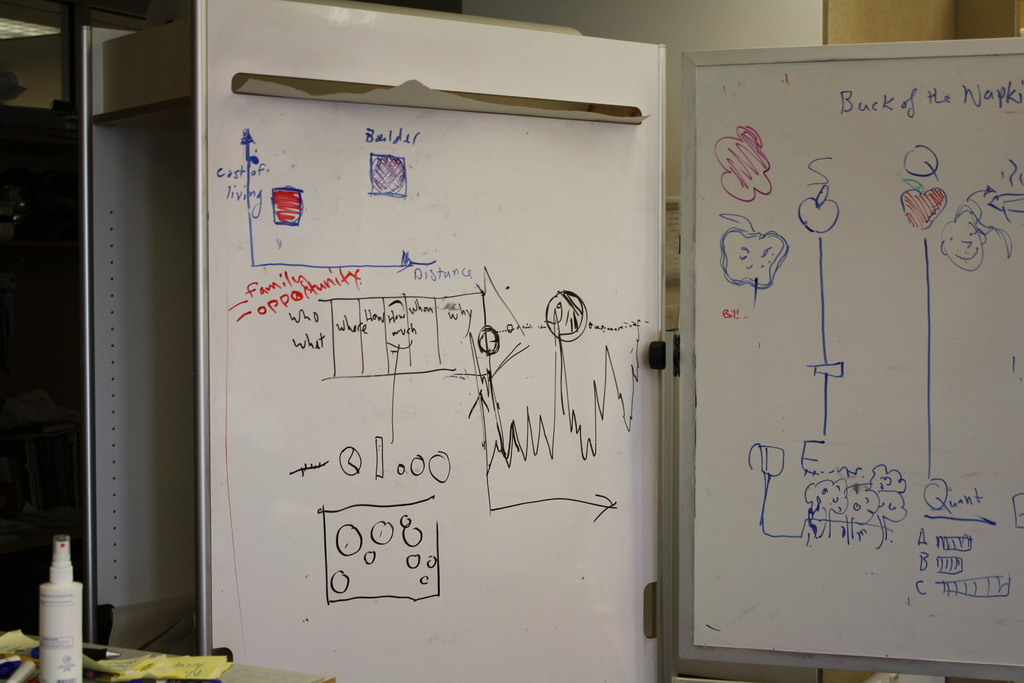 Boulder
cost of
living
Distance
- Family
- opportunity
who
what
where
How
How
much
when
why
Back of the Napki
Q
E
Quant
A
B
C